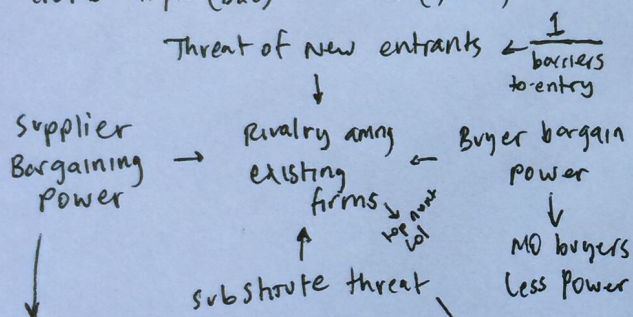 Threat of New entrants
1
barriers
to-entry
Supplier
Bargaining
Power
Rivalry amng
existing
firms
Buyer bargain
power
MO buyers
Less Power
substitute threat